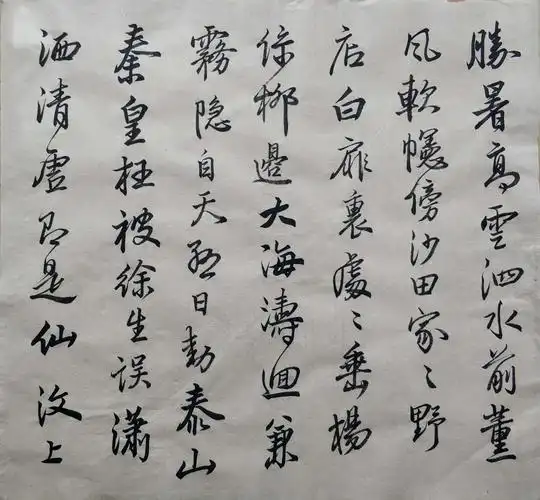 勝暑高雲泗水前薰
風軟幰傍沙田家々野
店白扉裏處々垂楊
綠柳邊大海濤迴兼
霧隱自天日動泰山
秦皇枉被徐生误瀟
洒清虚即是仙汶上